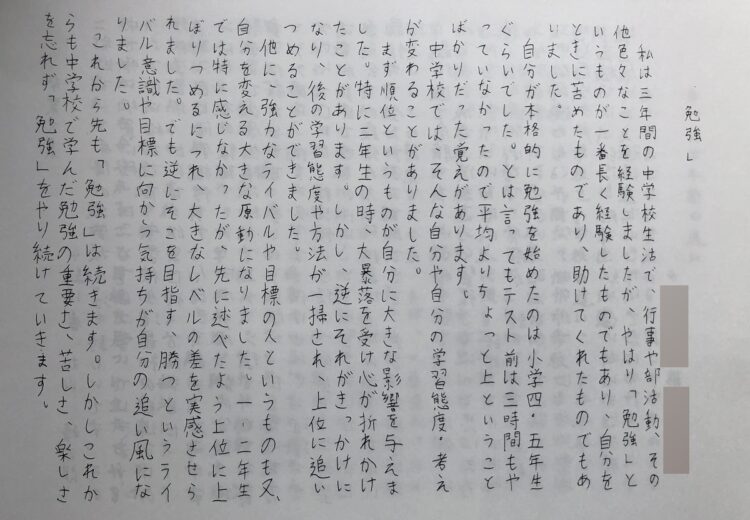 勉強」
私は三年間の中学校生活で、行事や部活動、その
他色々なことを経験しましたが、やはり「勉強」と
いうものが一番長く経験したものでもあり、自分を
ときに苦めたものであり、助けてくれたものでもあ
いました。
自分が本格的に勉強を始めたのは小学四・五年生
ぐらいでした。とは言ってもテスト前は三時間もや
っていなかったので平均よりちょっと上ということ
ばかりだった覚えがあります。
中学校では、そんな自分や自分の学習態度・考え
が変わることがありました。
まず順位というものが自分に大きな影響を与えま
した。特に二年生の時、大暴落を受け心が折れかけ
たことがあります。しかし、逆にそれがきっかけに
なり、後の学習態度や方法が一掃され、上位に追い
つめることができました。
他に、強力なライバルや目標の人というものも又、
自分を変える大きな原動になりました。一・二年生
では特に感じなかったが、先に述べたよう上位に上
ぼりつめるにつれ、大きなレベルの差を実感させら
れました。でも逆にそこを目指す、勝つというライ
バル意識や目標に向かう気持ちが自分の追い風にな
りました。
これから先も「勉強」は続きます。しかしこれか
らも中学校で学んだ勉強の重要さ、苦しさ 楽しさ
を忘れず「勉強」をやり続けていきます。